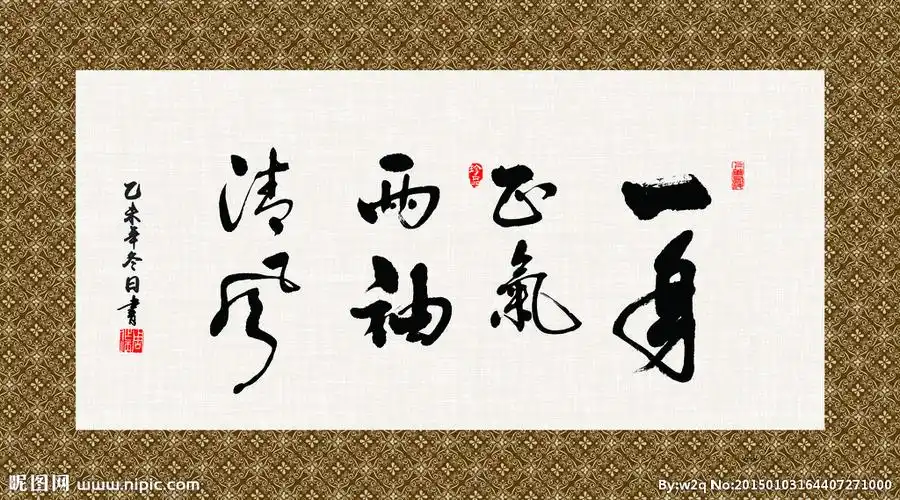 一身
正氣
兩袖
清風
乙未年冬日書
珍品
昵图网 www.nipic.com
By:w2q No:20150103164407271000